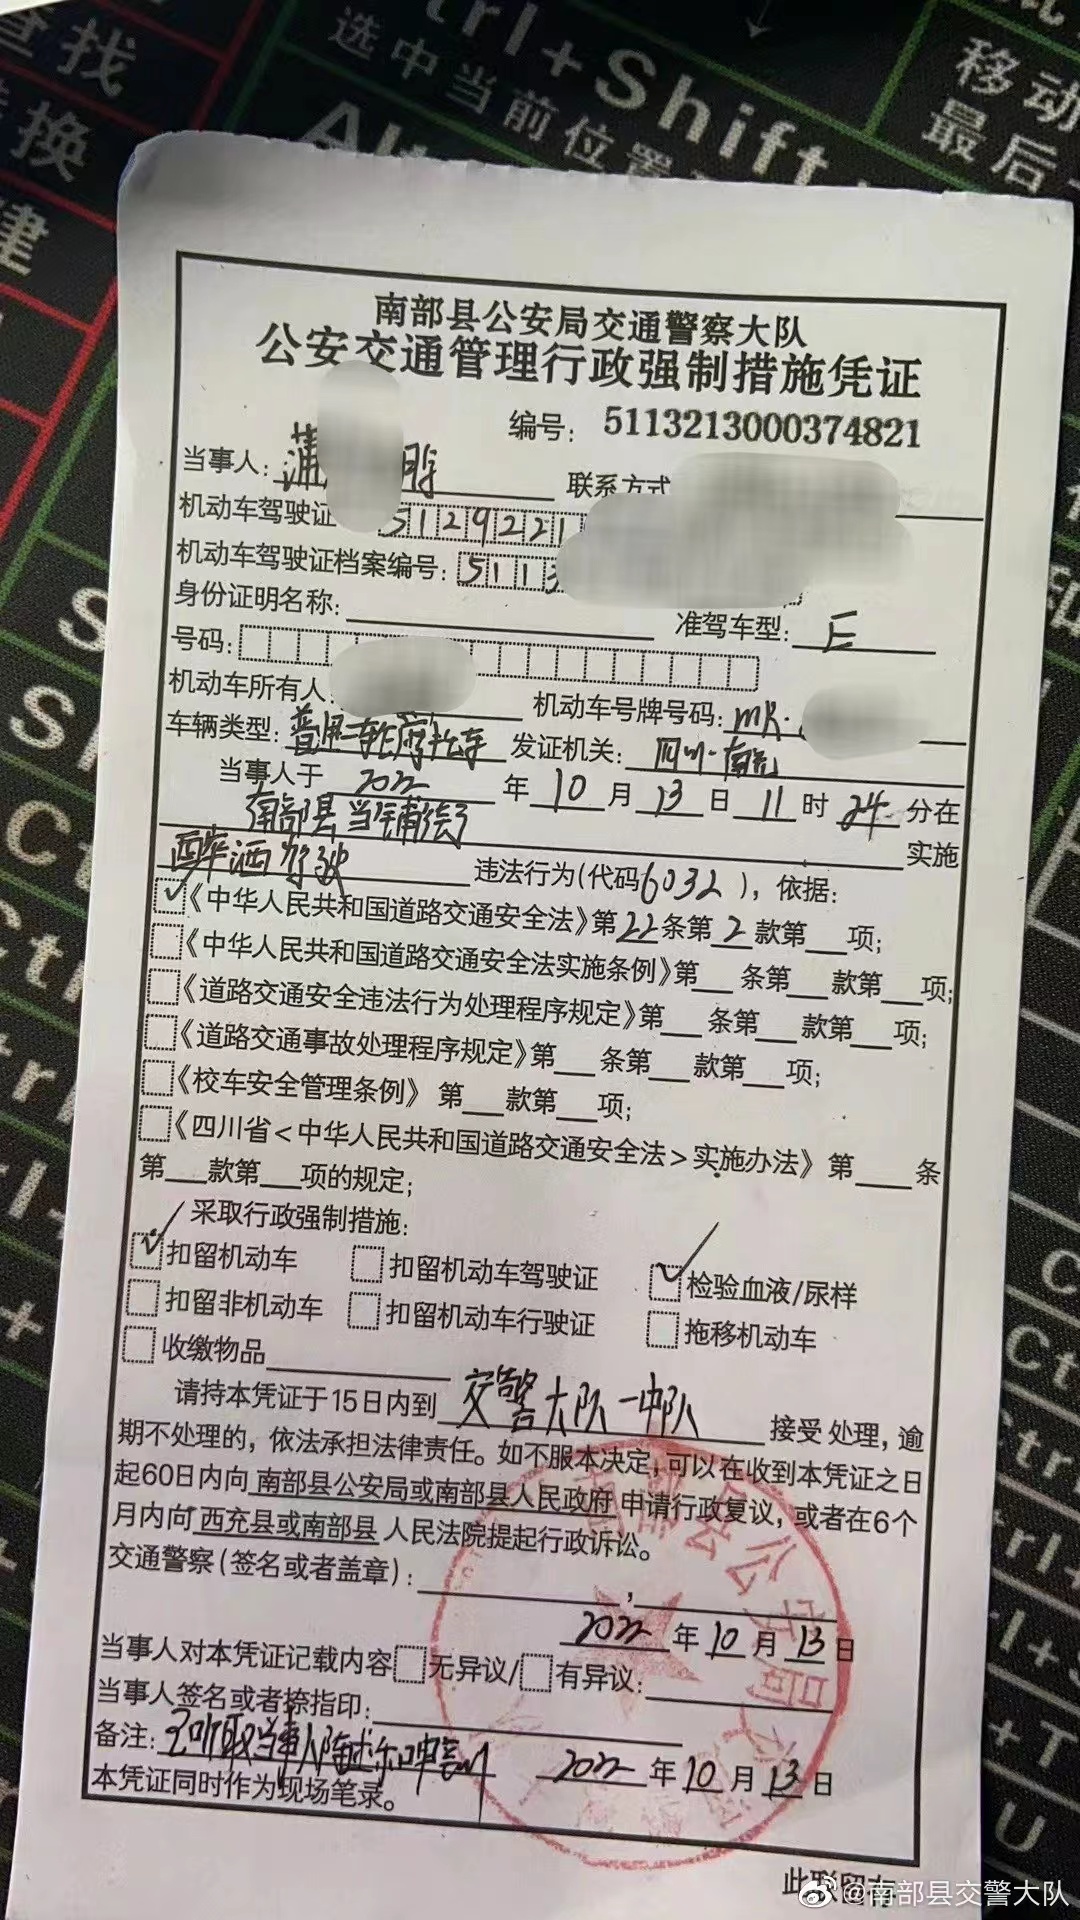 查找
替换
建
trl+Shift+
选中当前位置
Alt
移动
最后一
南部县公安局交通警察大队
公安交通管理行政强制措施凭证
编号: 5113213000374821
当事人: 蒲 明 联系方式
机动车驾驶证 5129221
机动车驾驶证档案编号: 5113
身份证明名称: 准驾车型: E
号码:
机动车所有人: 机动车号牌号码: MK·
车辆类型: 普通二轮摩托车 发证机关: 四川·南充
当事人于 2022 年 10 月 13 日 11 时 24 分在
南部县当铺街 实施
醉酒驾驶 违法行为(代码6032), 依据:
《中华人民共和国道路交通安全法》第22条第2款第 项;
《中华人民共和国道路交通安全法实施条例》第 条第 款第 项;
《道路交通安全违法行为处理程序规定》第 条第 款第 项;
《道路交通事故处理程序规定》第 条第 款第 项;
《校车安全管理条例》 第 款第 项;
《四川省<中华人民共和国道路交通安全法>实施办法》第 条
第 款第 项的规定;
采取行政强制措施:
扣留机动车 扣留机动车驾驶证 检验血液/尿样
扣留非机动车 扣留机动车行驶证 拖移机动车
收缴物品
请持本凭证于15日内到 交警大队一中队 接受处理, 逾
期不处理的, 依法承担法律责任。如不服本决定, 可以在收到本凭证之日
起60日内向 南部县公安局或南部县人民政府 申请行政复议, 或者在6个
月内向 西充县或南部县 人民法院提起行政诉讼。
交通警察(签名或者盖章): ,
2022 年 10 月 13 日
当事人对本凭证记载内容 无异议/ 有异议:
当事人签名或者捺指印:
备注: 已听取当事人陈述和申辩 2022 年 10 月 13 日
本凭证同时作为现场笔录。
此联留存
@南部县交警大队